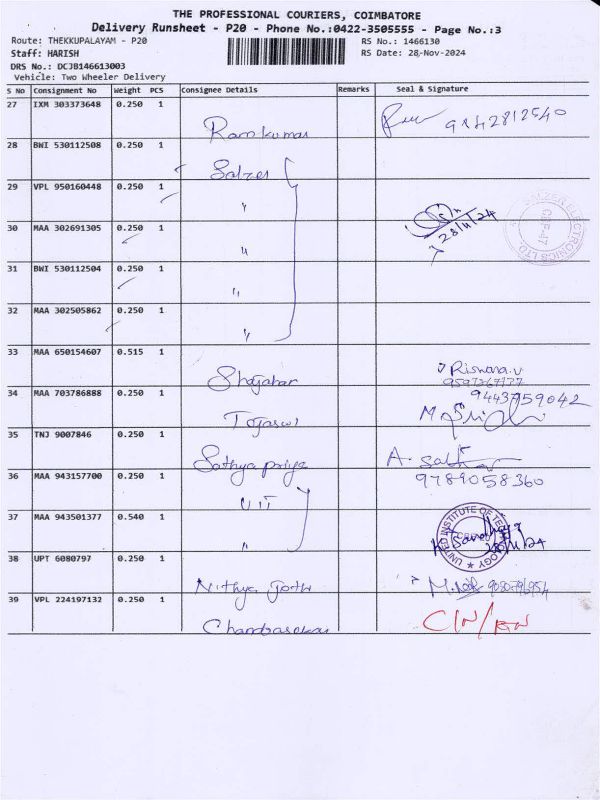 THE PROFESSIONAL COURIERS, COIMBATORE
Delivery Runsheet - P20 - Phone No.:0422-3505555 - Page No.:3
Route: THEKKUPALAYAM - P20 RS No.: 1466130
Staff: HARISH RS Date: 28-Nov-2024
DRS No.: DCJB146613003
Vehicle: Two Wheeler Delivery
S No Consignment No Weight PCS Consignee Details Remarks Seal & Signature
27 IXM 303373648 0.250 1
Ramkumar
28 BWI 530112508 0.250 1
Salzer
29 VPL 950160448 0.250 1
"
30 MAA 302691305 0.250 1
"
28/11/24
SALZER ELECTRONICS LTD.
31 BWI 530112504 0.250 1
"
32 MAA 302505862 0.250 1
"
33 MAA 650154607 0.515 1
Shajahar
Riswana.v
34 MAA 703786888 0.250 1
9443759042
35 TNJ 9007846 0.250 1
Sathya priya
9789058360
36 MAA 943157700 0.250 1
UIT
37 MAA 943501377 0.540 1
"
UNITED INSTITUTE OF TECHNOLOGY
38 UPT 6080797 0.250 1
Nithya Jothi
39 VPL 224197132 0.250 1
Chandrasekar